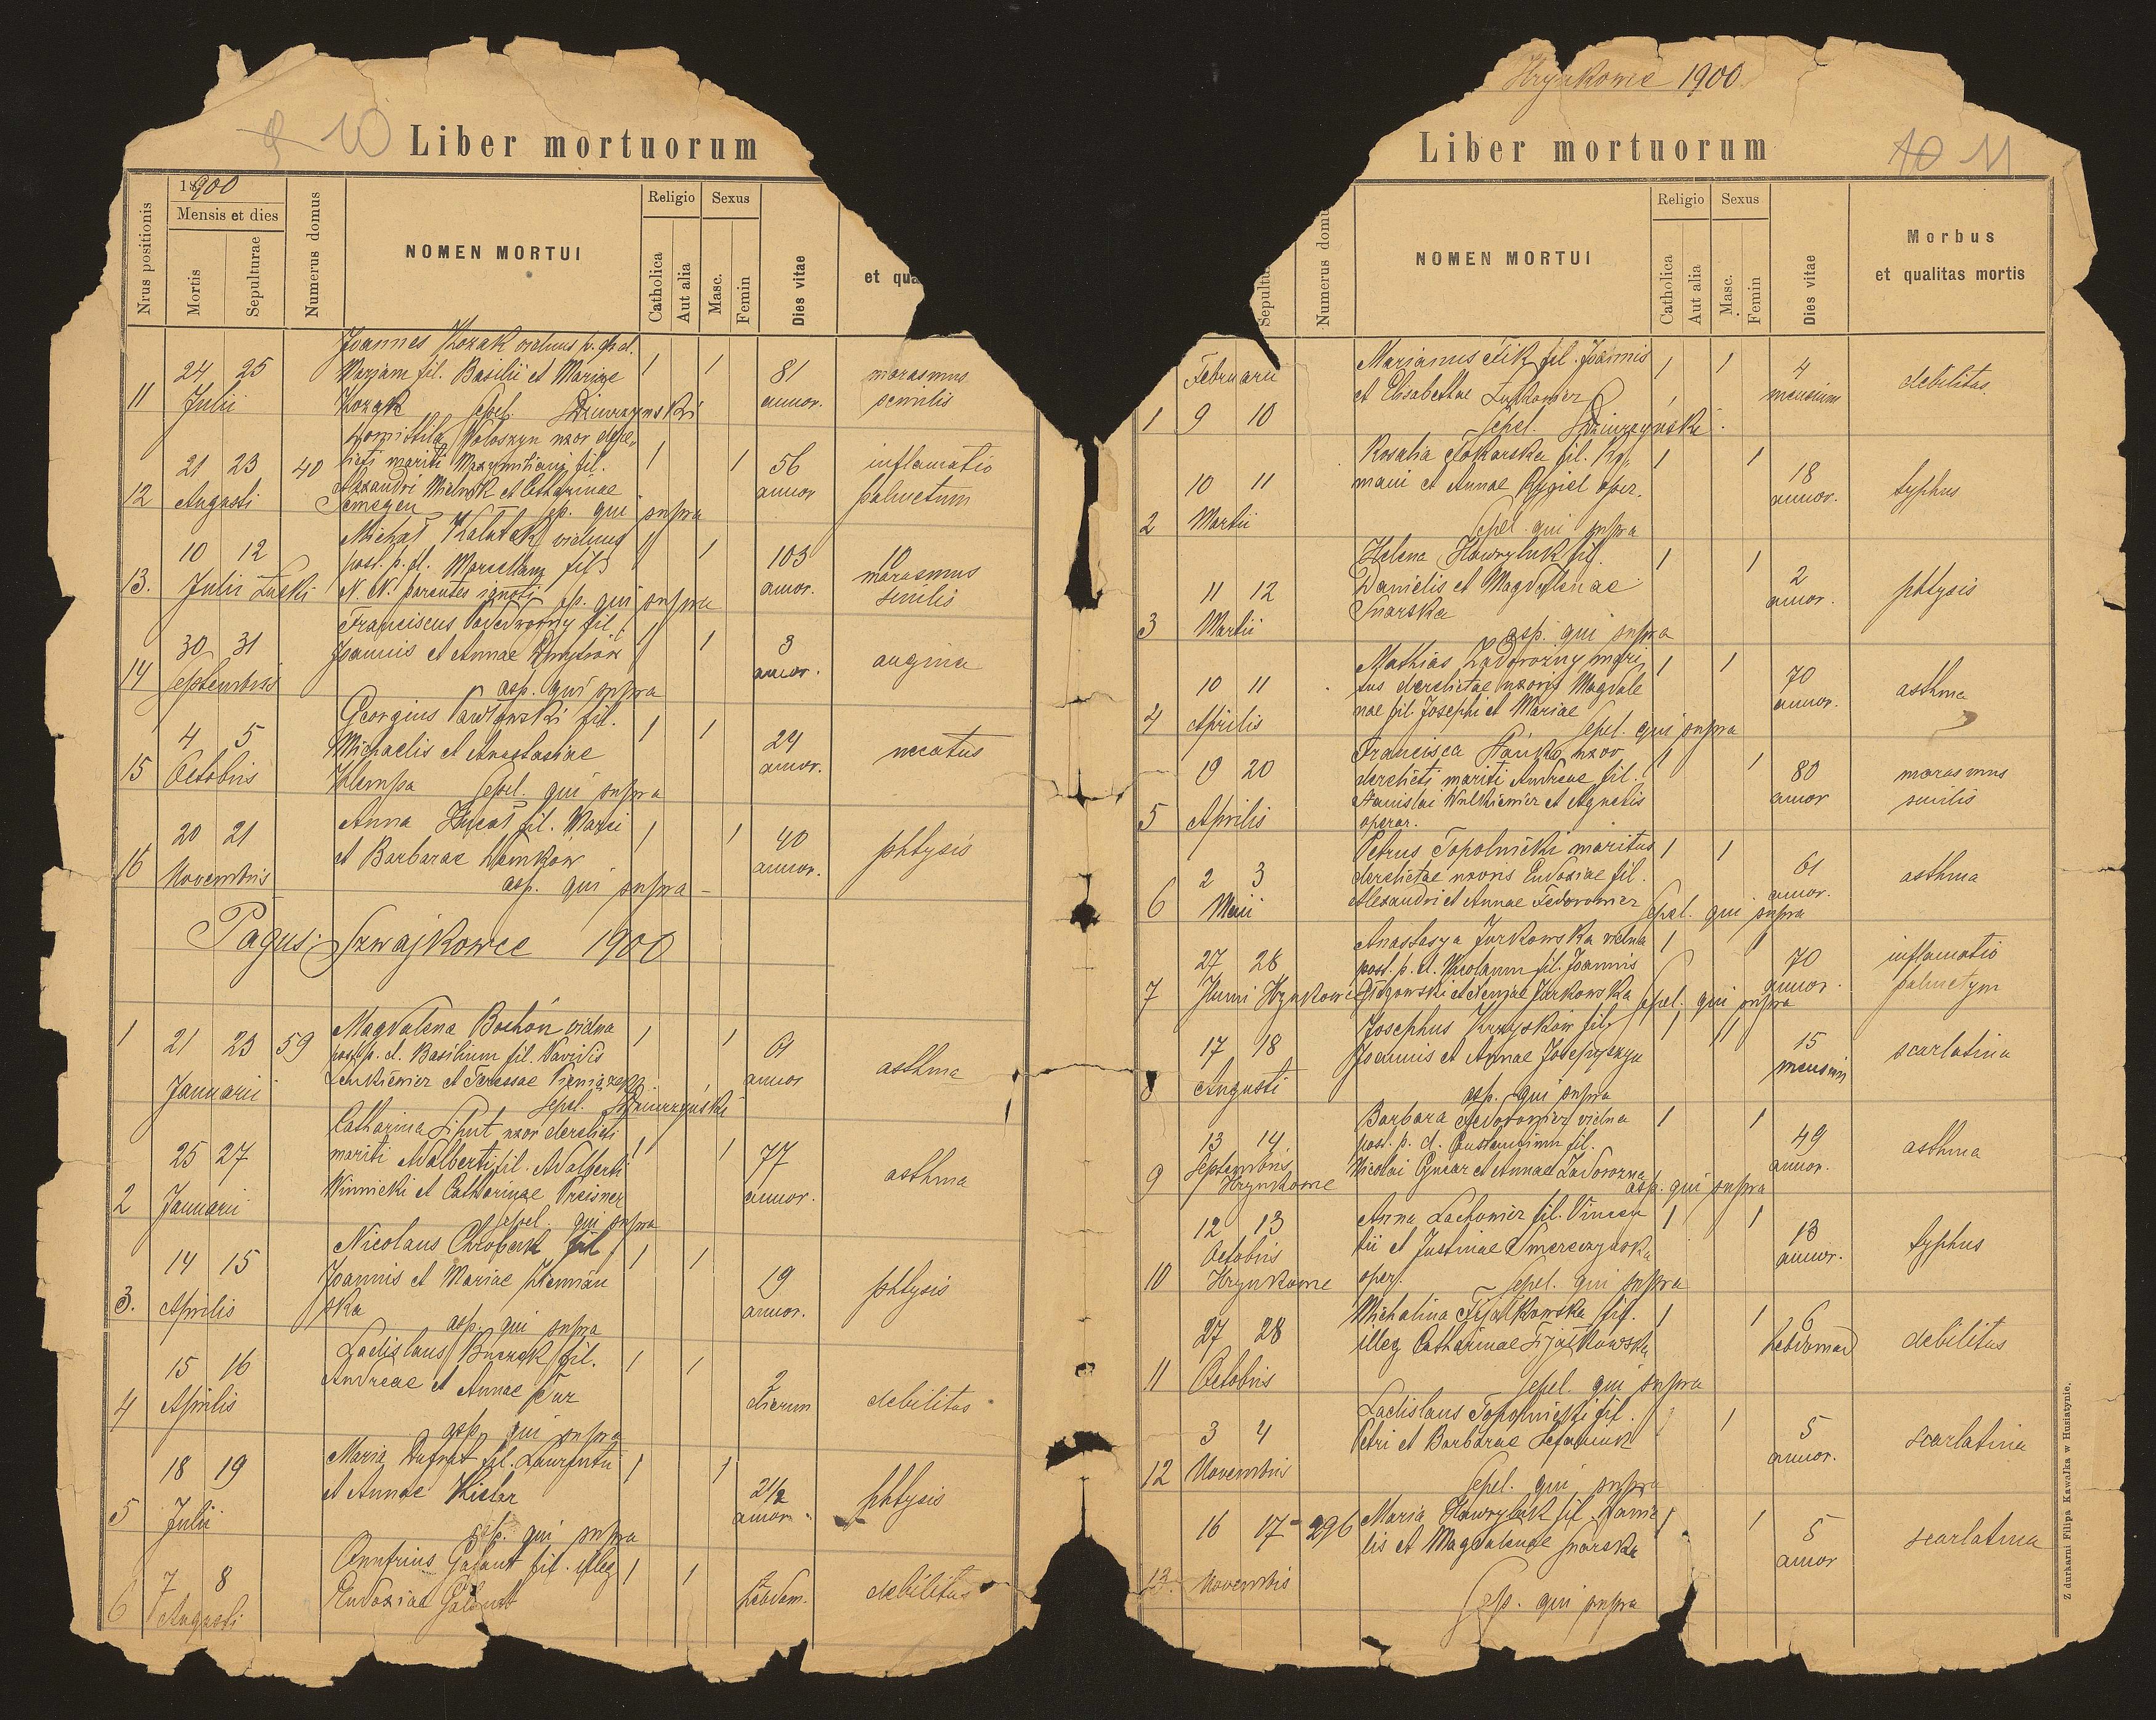 10
Liber mortuorum
1900
Mensis et dies
Nrus positionis
Mortis
Sepulturae
Numerus domus
NOMEN MORTUI
Religio
Catholica
Aut alia
Sexus
Masc.
Femin
Dies vitae
et qua
24 25
11 Julii
Joannes Kozak viduus p.
Marjam fil. Basilii et Mariae
Kozak sepel. Dziurzynski
1 1
81
annor.
marasmus
senilis
21 23 40
12 Augusti
Woloszyn uxor dere
licti mariti fil.
Alexandri et Catharinae
Semegen sp. qui supra
1 1
56
annor
inflamatio
palmctum
10 12
13. Julii Laski
Michał Kałutak viduus
post. p. d. fil.
N. N. parentes ignoti sp. qui supra
1 1
103
annor.
marasmus
senilis
30 31
14 Septembris
Franciscus fil.
Joannis et Annae Dmytrów
asp. qui supra
1 1
3
annor.
angina
4 5
15 Octobris
Georgius Pawłowski fil.
Michaelis et Anastasiae
Klempa sepel. qui supra
1 1
24
annor.
necatus
20 21
16 Novembris
Anna fil. Marci
et Barbarae Homków
asp. qui supra -
1 1
40
annor.
phtysis
Pagus: Szwajkowce 1900
1 21 23 59
Januarii
Magdalena Bochón vidua
post p. d. Basilium fil. Davidis
Lenkiewicz et Teressae
sepel. Dziurzyński
1 1
61
annor
asthma
25 27
2 Januarii
Catharina Liput uxor derelicti
mariti Adalberti fil. Adalberti
Winnicki et Catharinae Preisner
sepel. qui supra
1 1
77
annor.
asthma
14 15
3. Aprilis
Nicolaus Chrobak fil.
Joannis et Mariae
ska
asp. qui supra
1 1
19
annor.
phtysis
15 16
4 Aprilis
Ladislaus Buczak fil.
Andreae et Annae Tur
asp. qui supra
1 1
2
dierum
debilitas
18 19
5 Julii
Maria fil. Laurentii
et Annae Kielar
asp. qui supra
1 1
2 1/2
annor.
phtysis
7 8
6 Augusti
Onufrius fil. illeg
Eudoxiae
1 1
hebdom.
debilitas
Hrynkowce 1900.
Liber mortuorum
10 11
Sepultu
Numerus domu
NOMEN MORTUI
Religio
Catholica
Aut alia
Sexus
Masc.
Femin
Dies vitae
Morbus
et qualitas mortis
Februarii
1 9 10
Marianus fil. Joannis
et Elisabethae Łuszkowicz
sepel. Dziurzyński.
1 1
4
mensium
debilitas.
10 11
2 Martii
Rosalia Tokarska fil. Ro
mani et Annae oper.
sepel. qui supra
1 1
18
annor.
typhus
11 12
3 Martii
Helena Hawryluk fil.
Danielis et Magdalenae
Snarska
asp. qui supra
1 1
2
annor.
phtysis
10 11
4 Aprilis
Mathias Zadorozny mari
tus derelictae uxoris Magdale
nae fil. Josephi et Mariae
sepel. qui supra
1 1
70
annor.
asthma
19 20
5 Aprilis
Francisca uxor
derelicti mariti Andreae fil.
Stanislai Wulkiewicz et Agnetis
operar.
1 1
80
annor
marasmus
senilis
2 3
6 Maii
Petrus Topolnicki maritus
derelictae uxoris Eudoxiae fil.
Alexandri et Annae Fedorowicz
sepel. qui supra
1 1
61
annor.
asthma
27 28
7 Junii Hrynkowce
Anastasya Jurkowska vidua
post. p. d. Nicolaum fil. Joannis
et Jurkowska sepel. qui supra
1 1
70
annor.
inflamatio
palmctym
17 18
8 Augusti
Josephus Krzyśków fil.
Joannis et Annae
asp. qui supra
1 11
15
mensium
scarlatina
13 14
9 Septembris
Hrynkowce
Barbara Fedorowicz vidua
post. p. d. Constantinum fil.
Nicolai et Annae Zadorozna
asp. qui supra
1 1
49
annor.
asthma
12 13
Octobris
10 Hrynkowce
Anna Lachowicz fil. Vincen
tii et Justinae Smereczyńska
oper. sepel. qui supra
1 1
13
annor.
typhus
27 28
11 Octobris
Michalina Fijałkowska fil.
illeg Catharinae Fijałkowska
sepel. qui supra
1 1
6
hebdomad
debilitas
3 4
12 Novembris
Ladislaus Topolnicki fil.
Petri et Barbarae Stefaniuk
sepel. qui supra
1 1
5
annor.
scarlatina
16 17 296
13. Novembis
Maria Hawryluk fil. Danie
lis et Magdalenae Snarska
sep. qui supra
1 1
5
annor
scarlatina
Z durkarni Filipa Kawałka w Husiatynie.